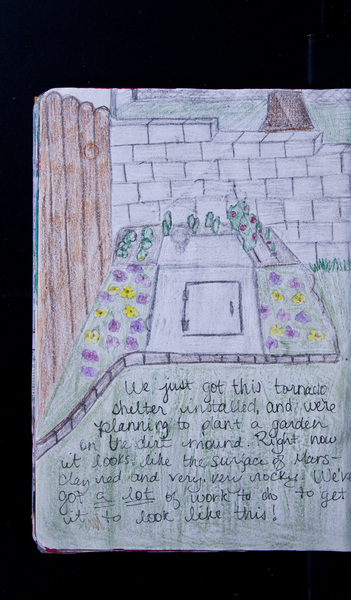 We just got this tornado
shelter installed, and were
planning to plant a garden
on the dirt mound. Right now
it looks like the surface of Mars-
clay red and very, very rocky. We've
got a lot of work to do to get
it to look like this!